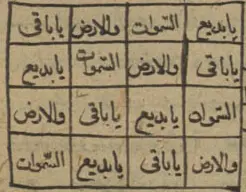 يا بديع السموات والارض يا باقى
يا باقى والارض السموات يا بديع
السموات يا بديع يا باقى والارض
والارض يا باقى يا بديع السموات